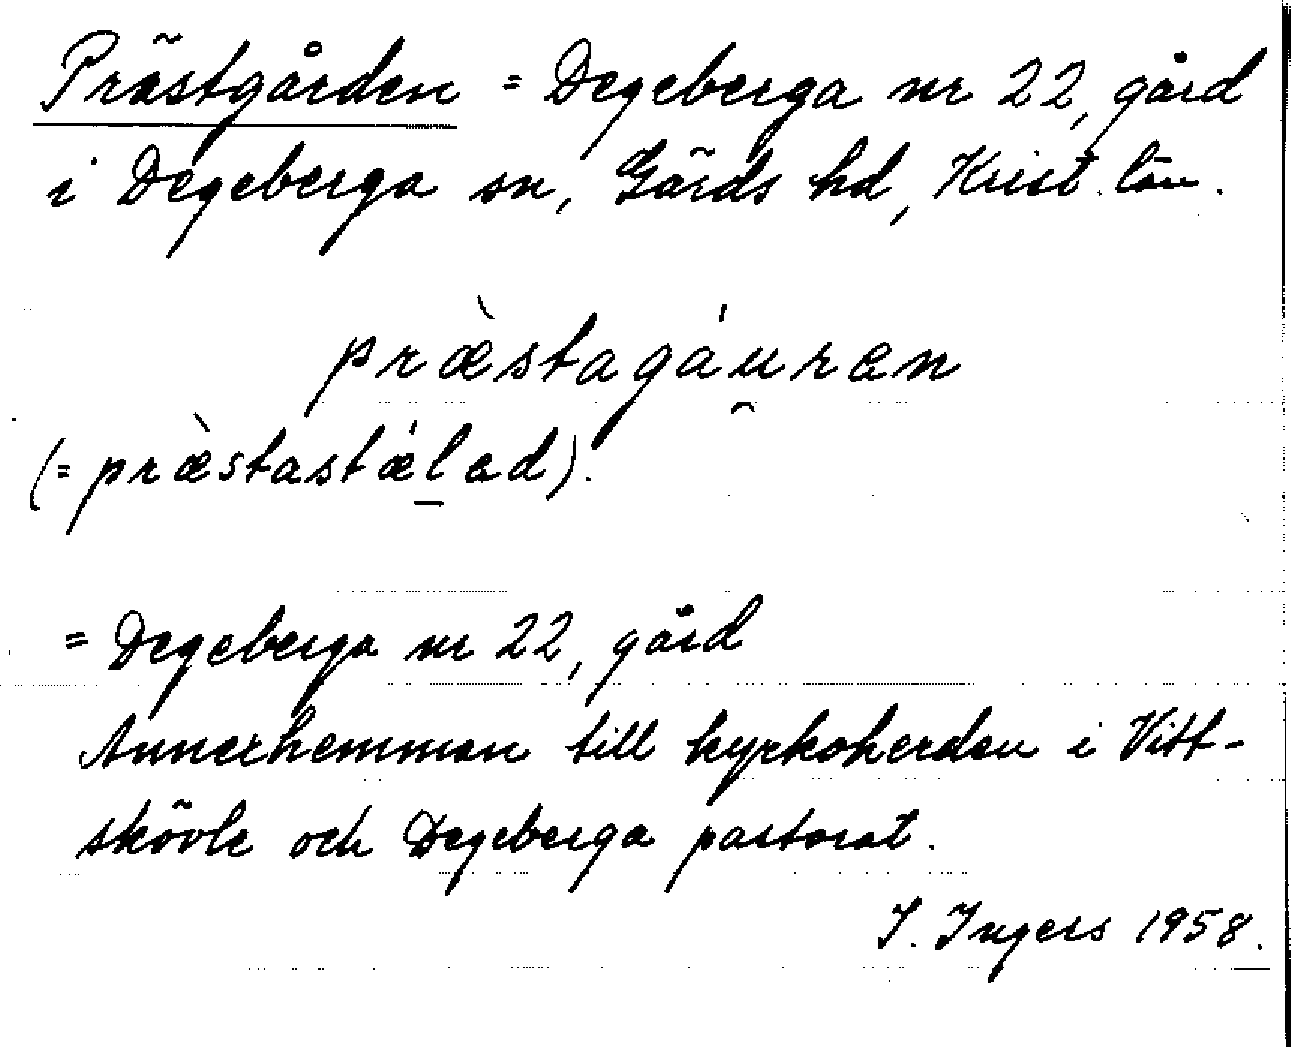 Prästgården = Degeberga nr 22, gård
i Degeberga sn, Gärds hd, Krist. län.
præ̀stagáu̯ren
(= præ̀stastǽl̠ed).
= Degeberga nr 22, gård
Annexhemman till kyrkoherden i Vitt-
skövle och Degeberga pastorat.
I. Ingers 1958.